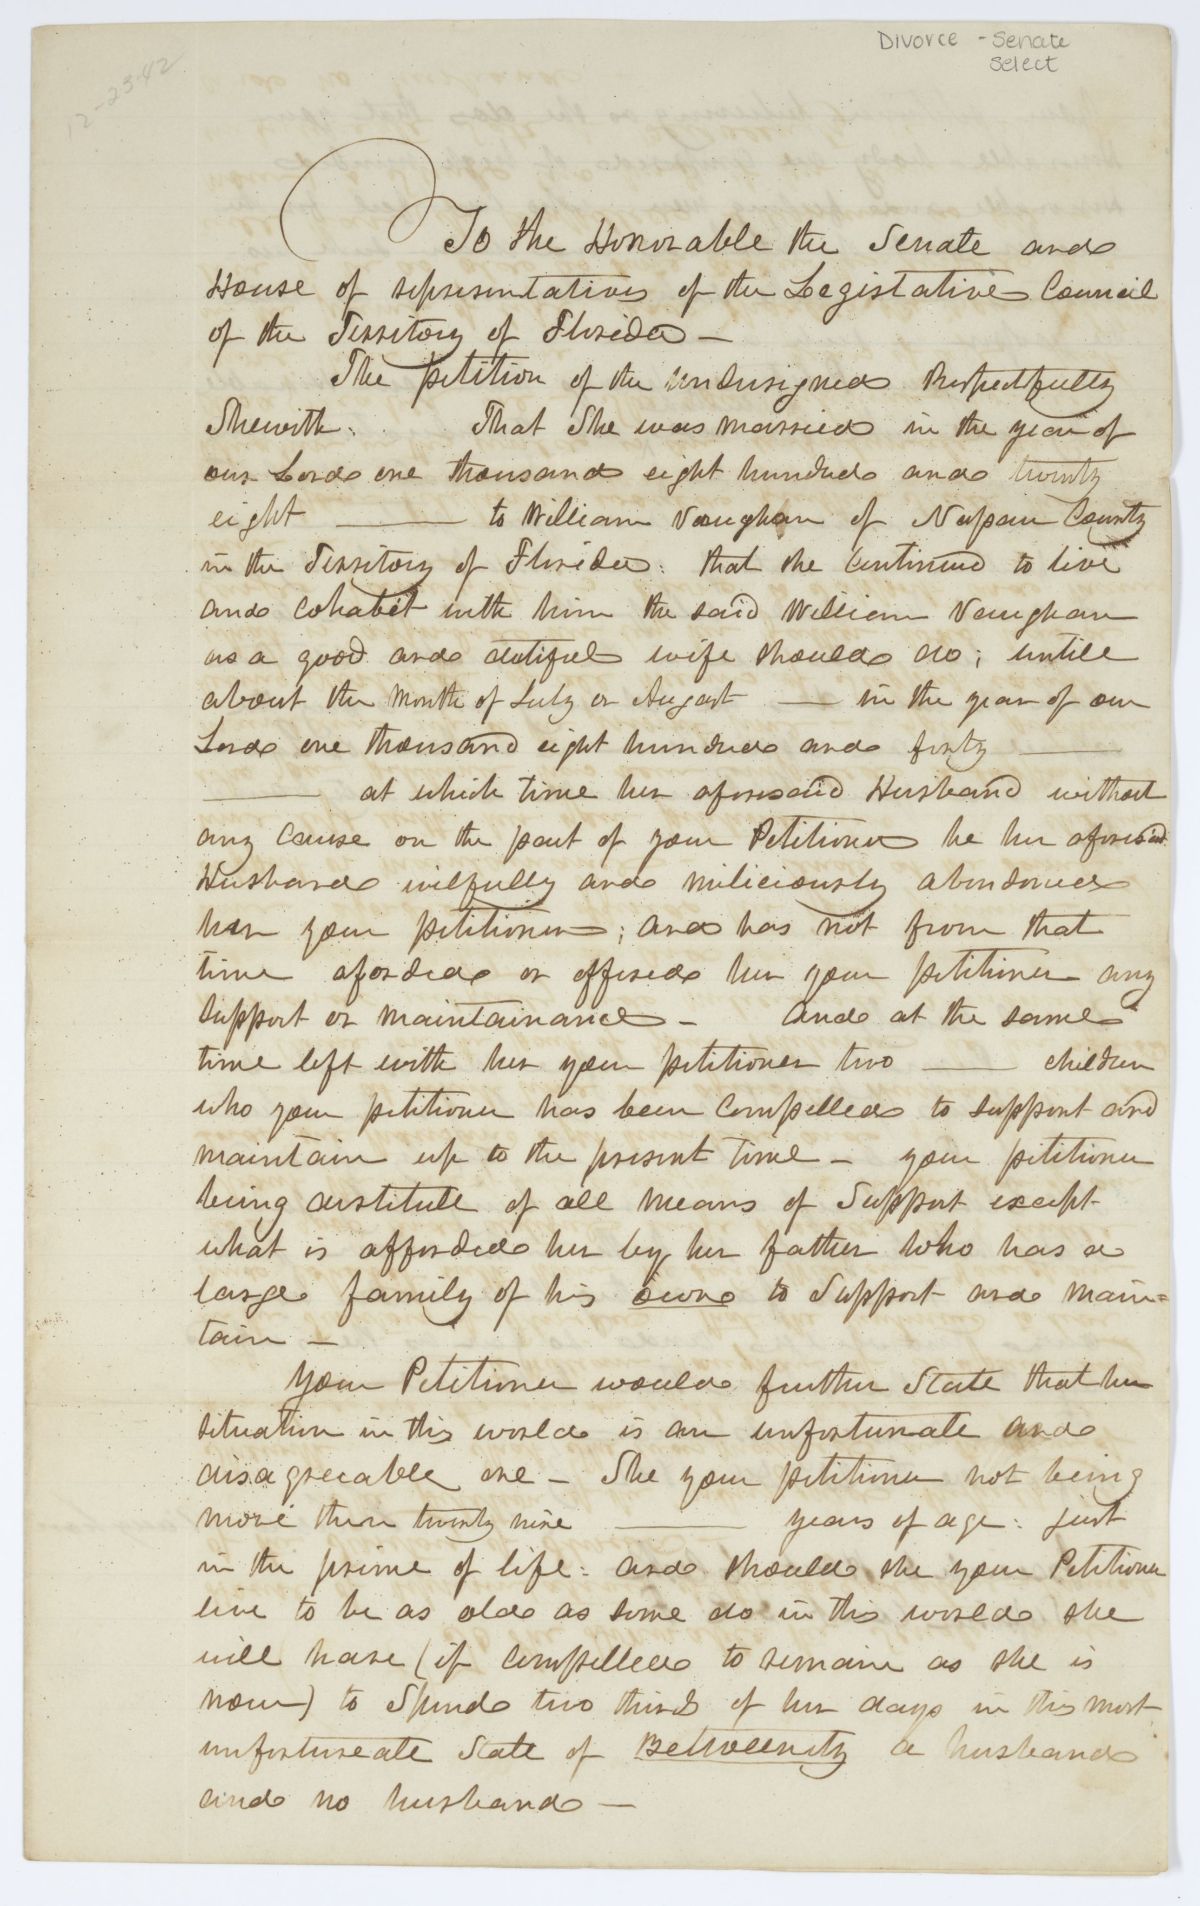 Divorce - Senate
Select
12-23-42
To the Honorable the Senate and
House of representatives of the Legistative Council
of the Territory of Florida -
The petition of the undersigned Respectfully
Shewith. That She was married in the year of
our Lord one thousand eight hundred and twenty
eight to William Vaughan of Nassau County
in the Territory of Florida. that she Continued to live
and Cohabit with him the said William Vaughan
as a good and dutiful wife should do; untill
about the Month of July or August in the year of our
Lord one thousand eight hundred and forty
at which time her aforesaid Husband without
any Cause on the part of your Petitioner he her aforesaid
Husband wilfully and miliciously abandoned
her your petitioner; and has not from that
time aforded or offered her your petitioner any
support or maintainance - and at the same
time left with her your petitioner two children
who your petitioner has been Compelled to support and
maintain up to the present time - your petitioner
being destitute of all means of Support except
what is afforded her by her father who has a
large family of his own to Support and main=
tain -
Your Petitioner would further State that her
situation in this world is an unfortunate and
disagreeable one - She your petitioner not being
more than twenty nine years of age: just
in the prime of life: and should she your Petitioner
live to be as old as some do in this world she
will have (if Compelled to remain as she is
now) to Spend two thirds of her days in this most
unfortunate State of Betweenity a husband
and no husband -